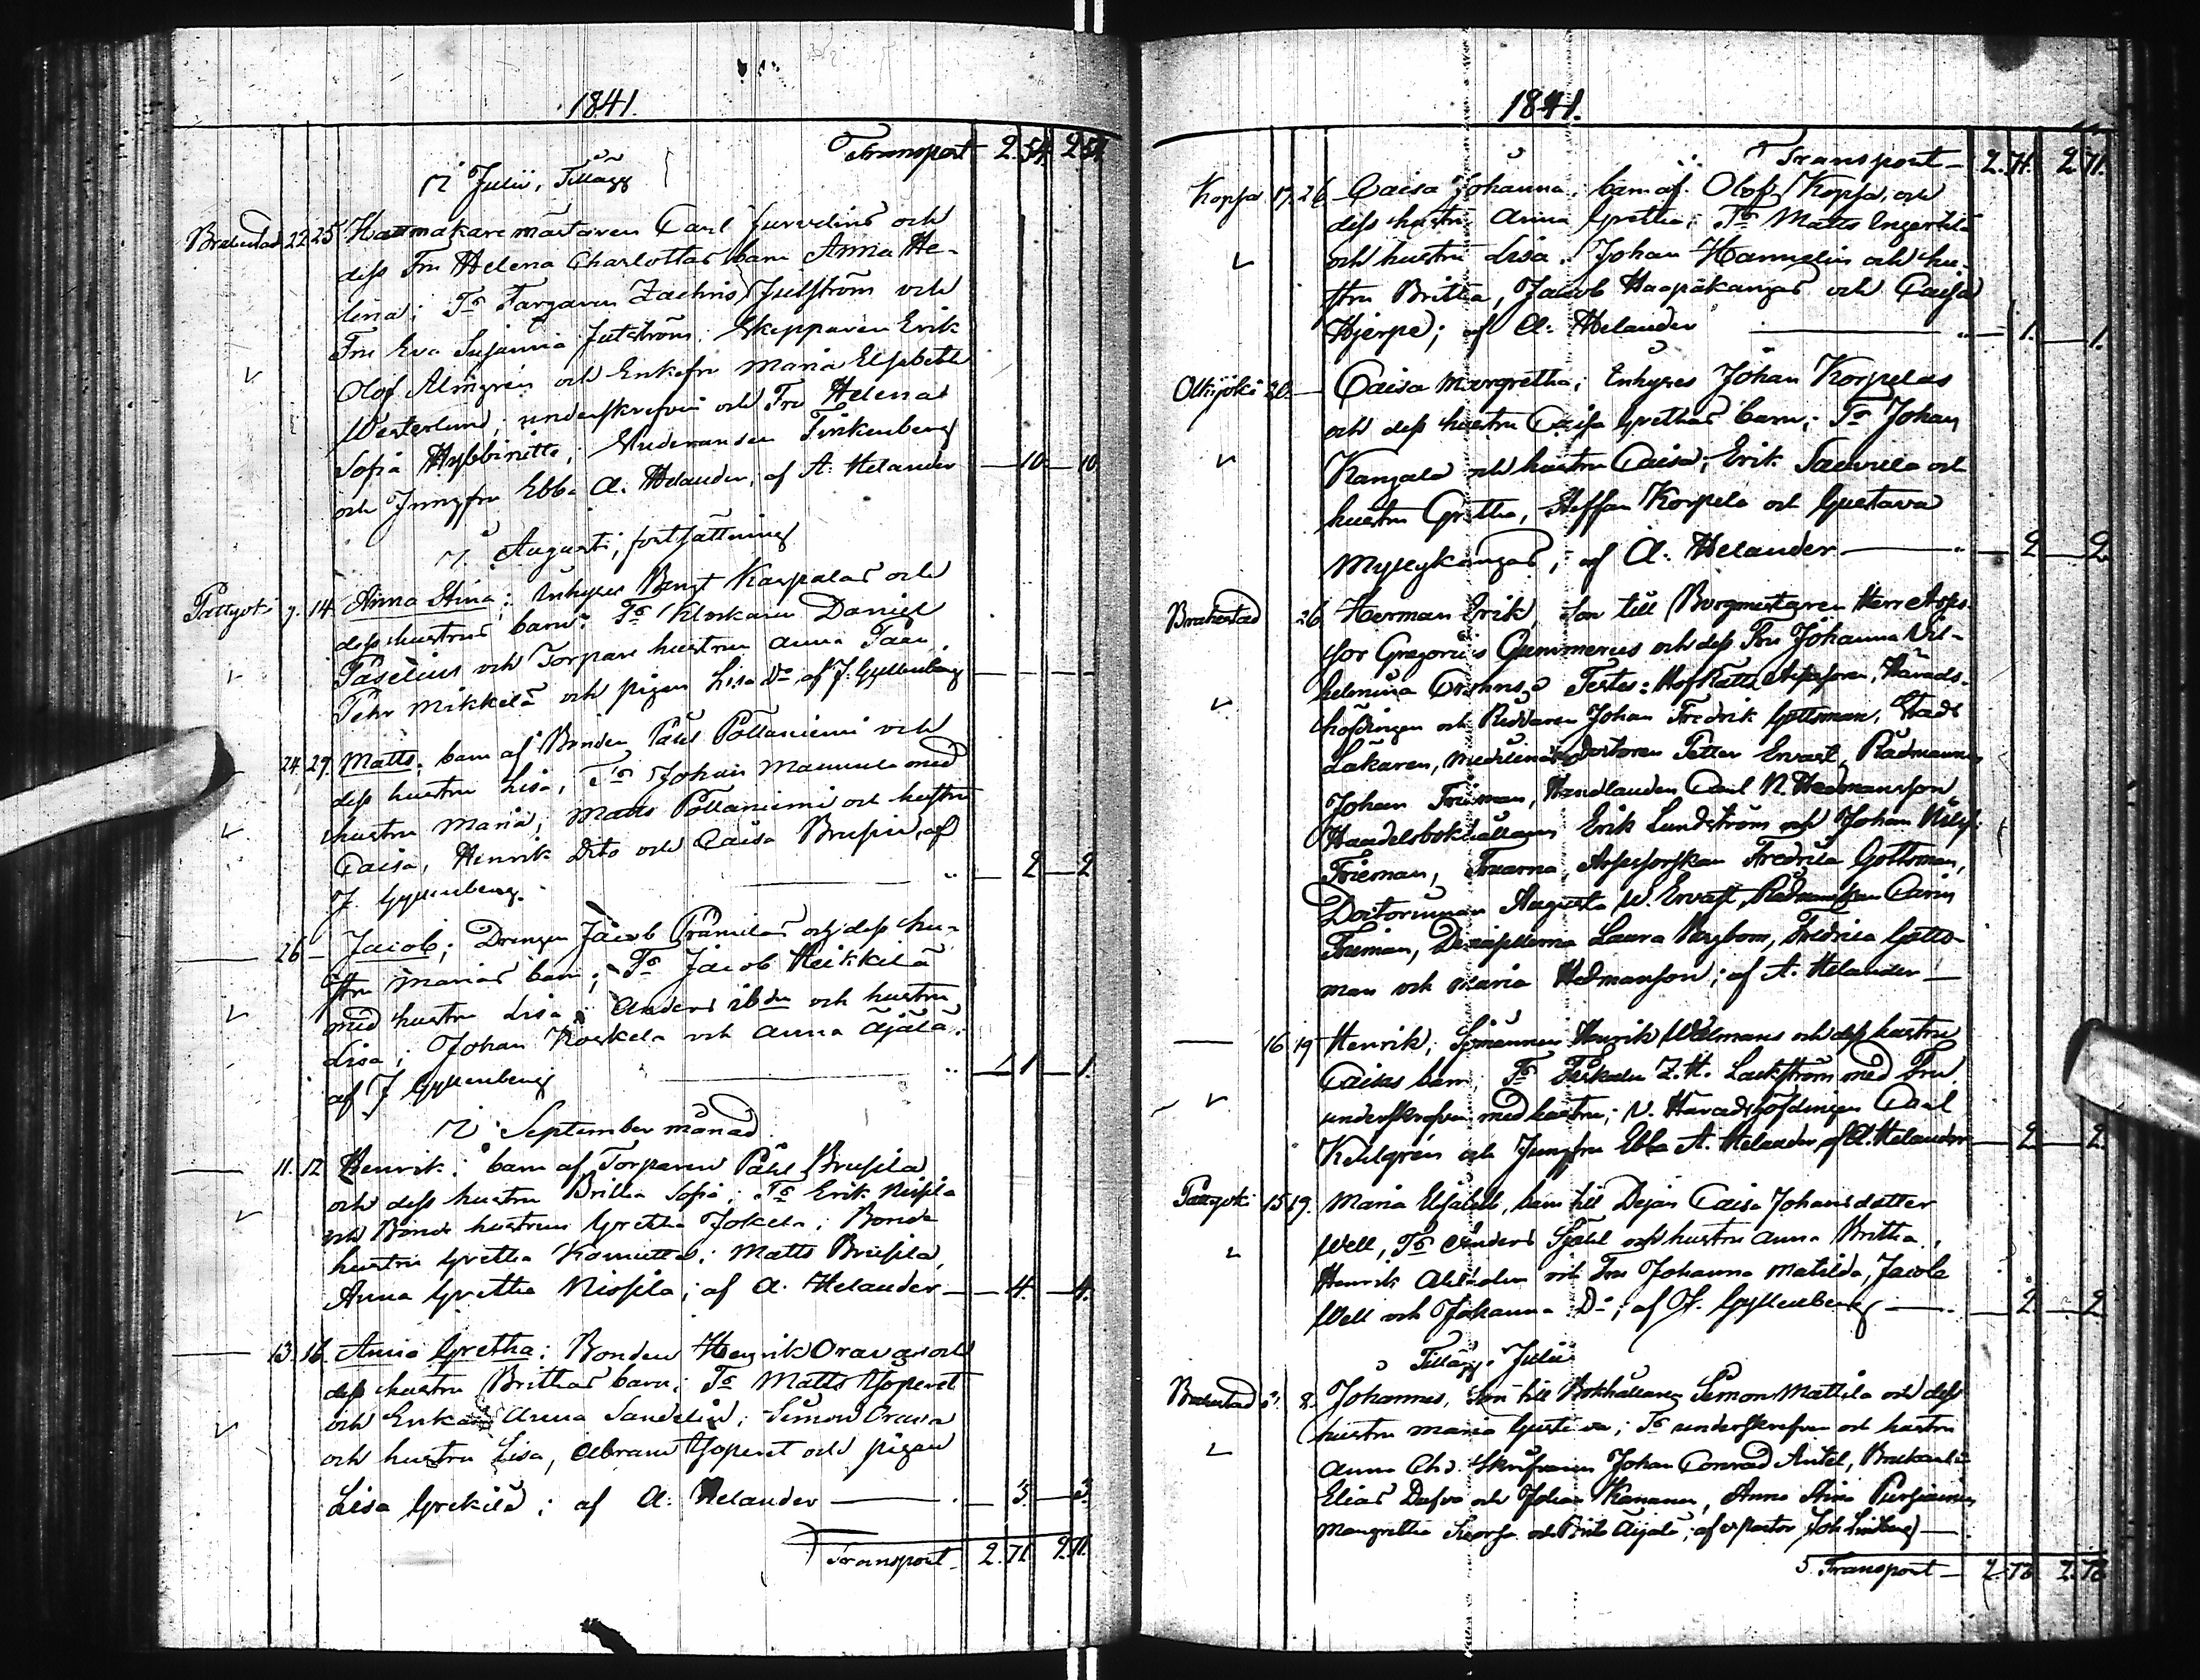 1841.
Transport 2. 54 2 54
I Julii, Tillägg
Brahestad 22 25 Hattmakaremästaren Carl Jurvelius och
dess Fru Helena Charlottas barn Anna He-
lena; Ts Färgaren Zachris Julström och
Fru Eva Susanna Julström; Skepparen Erik
Olof Almgrén och Enkefru Maria Elisabeth
Westerlund, underskrefven och Fru Helena
Sofia Hybbinette; Studeranden Finkenberg
och Jungfru Ebba A. Helander, af A. Helander 10 10
I Augusti, fortsättning
Pattijoki 9. 14 Anna Stina: Inhyses Bengt Karpalas och
dess hustrus barn: Ts Klockaren Daniel
Paselius och Torpare hustrun Anna
Pehr Mikkelä och pigan Lisa Do af J. Gyllenberg
24 29. Matts, barn af Bonden Påhl Pölläniemi och
dess hustru Lisa, Ts Johan Mannula med
hustru Maria, Matts Pölläniemi och hustru
Caisa, Henrik Dito och Caisa Brusin, af
J. Gyllenberg. 2 2
26 – Jacob; Drengen Jacob och dess hu-
stru Marias barn; Ts Jacob Heikkilä
med hustru Lisa; Anders och hustru
Lisa; Johan Koskela och Anna Äijälä.
af J Gyllenberg 1 1.
I September månad
11. 12 Henrik; barn af Torparen Påhl Brusila
och dess hustru Britta Sofia; Ts Erik Nissilä
och Bonde hustrun Gretha Jokela; Bonde
hustru Gretha; Matts Brusila,
Anna Gretha Nissila; af A. Helander 4. 4.
13. 16. Anna Gretha: Bonden Henrik Oravas och
dess hustru Brithas barn; Ts Matts Yoperet
och Enkan Anna Sandelin; Simon Orava
och hustru Lisa, Abram Yoperet och pigan
Lisa Grekilä; af A. Helander 3. 3.
Transport 2. 71 2. 71.
1841.
Transport 2. 71. 2. 71.
Kopsa 17. 26 Caisa Johanna, barn af Olof Kopsa, och
dess hustru Anna Gretha; Ts Matts
och hustru Lisa. Johan Hannelin och hu-
stru Britha, Jacob Haapakangas och Caisa
Hjerpe; af A. Helander 1. 1.
Olkijoki 20. – Caisa Margretha; Inhyses Johan Korpelas
och dess hustru Caisa Grethas barn; Ts Johan
Kangala och hustru Caisa; Erik Sauvula och
hustru Gretha, Steffan Korpela och Gustava
Myllykangas, af A. Helander 2 2
Brahestad 26 Herman Erik, Son till Borgmästaren Herr Asses-
sor Gregorius Gummerus och dess Fru Johanna Vil-
helmina Testes: HofRätts Assessoren, Härads-
höfdingen och Riddaren Johan Fredrik Gottsman, Stads
Läkaren, Medicinæ Doctoren Petter Ervast, Rådmannen
Johan Frieman, Handlanden Carl N. Hedmansson
Handelsbokhållaren Erik Lundström och Johan
Frieman, Fruarna, Assessorskan Fredrika Gottsman,
Doctorinnan Augusta W. Ervast, Rådmanskan Carin
Frieman, Demoisellerna Laura Bergbom, Fredrica Gotts-
man och Maria Hedmansson; af A. Helander –
16 19 Henrik; Sjömannen Henrik Welmans och dess hustru
Caisas barn; Ts Fiskalen Z. H. Lackström med Fru
underskrefven med hustru; V. Häradshöfdingen Carl
Kihlgrén och Jungfru Ebba A. Helander, af A. Helander 2 2
Pattijoki 15 19. Maria Elisabeth, barn till Dejan Caisa Johansdotter
Well, Ts Anders Sjöhl och hustru Anna Britha.
Henrik Ahlholm och Fru Johanna Matilda, Jacob
Well och Johanna Do; af J. Gyllenberg 2. 2
Tillägg. Julii
Brahestad 8. Johannes, Son till Bokhållaren Simon Mattila och dess
hustru Maria Gustava; Ts underskrefven och hustru
Anna Johan Conrad Antel,
Elias och Johan Kananen, Anna Stina
Margretha och Brita Äijälä; af
Transport 2. 78 2. 78